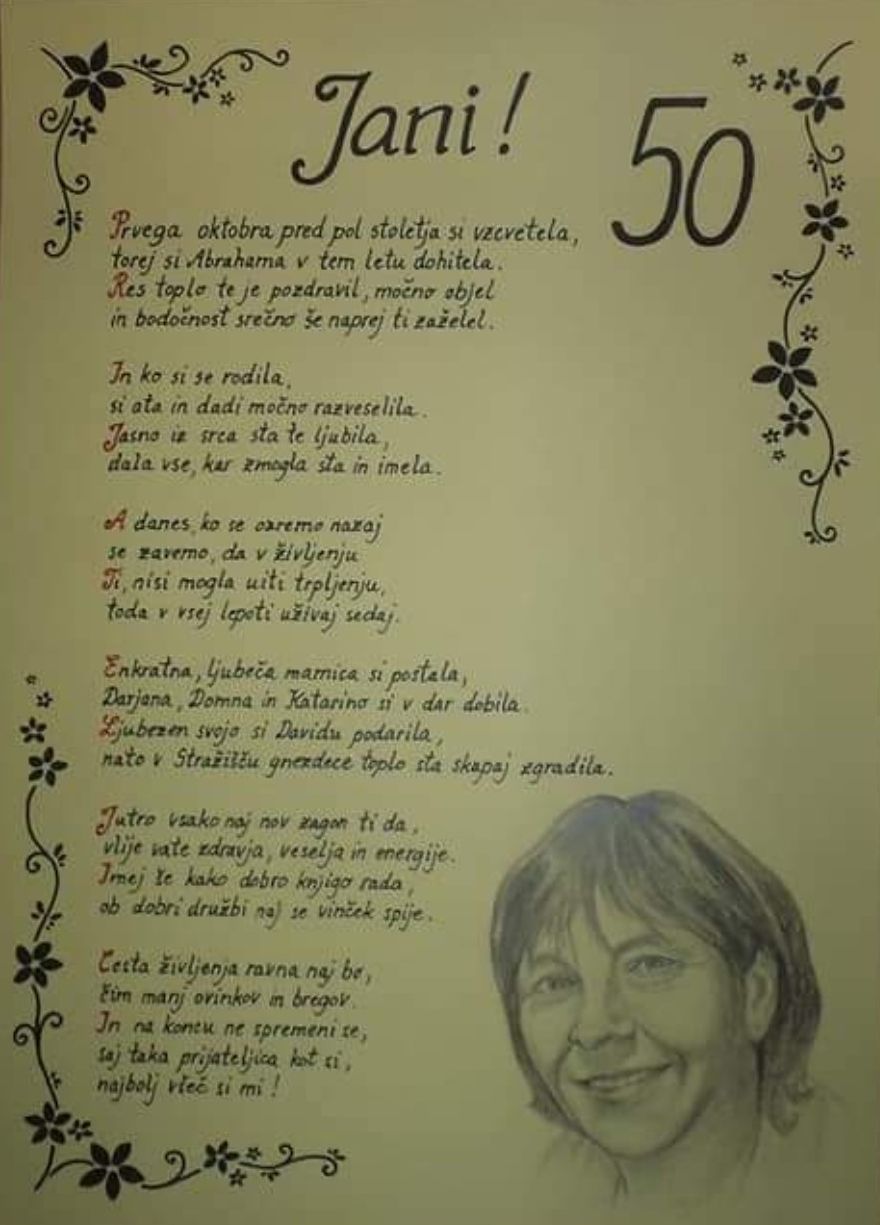 Jani!
50
Prvega oktobra pred pol stoletja si vzcvetela,
torej si Abrahama v tem letu dohitela.
Res toplo te je pozdravil, močno objel
in bodočnost srečno še naprej ti zaželel.
In ko si se rodila,
si ata in dadi močno razveselila.
Jasno iz srca sta te ljubila,
dala vse, kar zmogla sta in imela.
A danes, ko se ozremo nazaj
se zavemo, da v življenju
Ti, nisi mogla uiti trpljenju,
toda v vsej lepoti uživaj sedaj.
Enkratna, ljubeča mamica si postala,
Darjana, Domna in Katarino si v dar dobila.
Ljubezen svojo si Davidu podarila,
nato v Stražišču gnezdece toplo sta skapaj zgradila.
Jutro vsako naj nov zagon ti da,
vlije vate zdravja, veselja in energije.
Imej še kako dobro knjigo rada,
ob dobri družbi naj se vinček spije.
Cesta življenja ravna naj bo,
čim manj ovinkov in bregov.
In na koncu ne spremeni se,
saj taka prijateljica kot si,
najbolj všeč si mi!